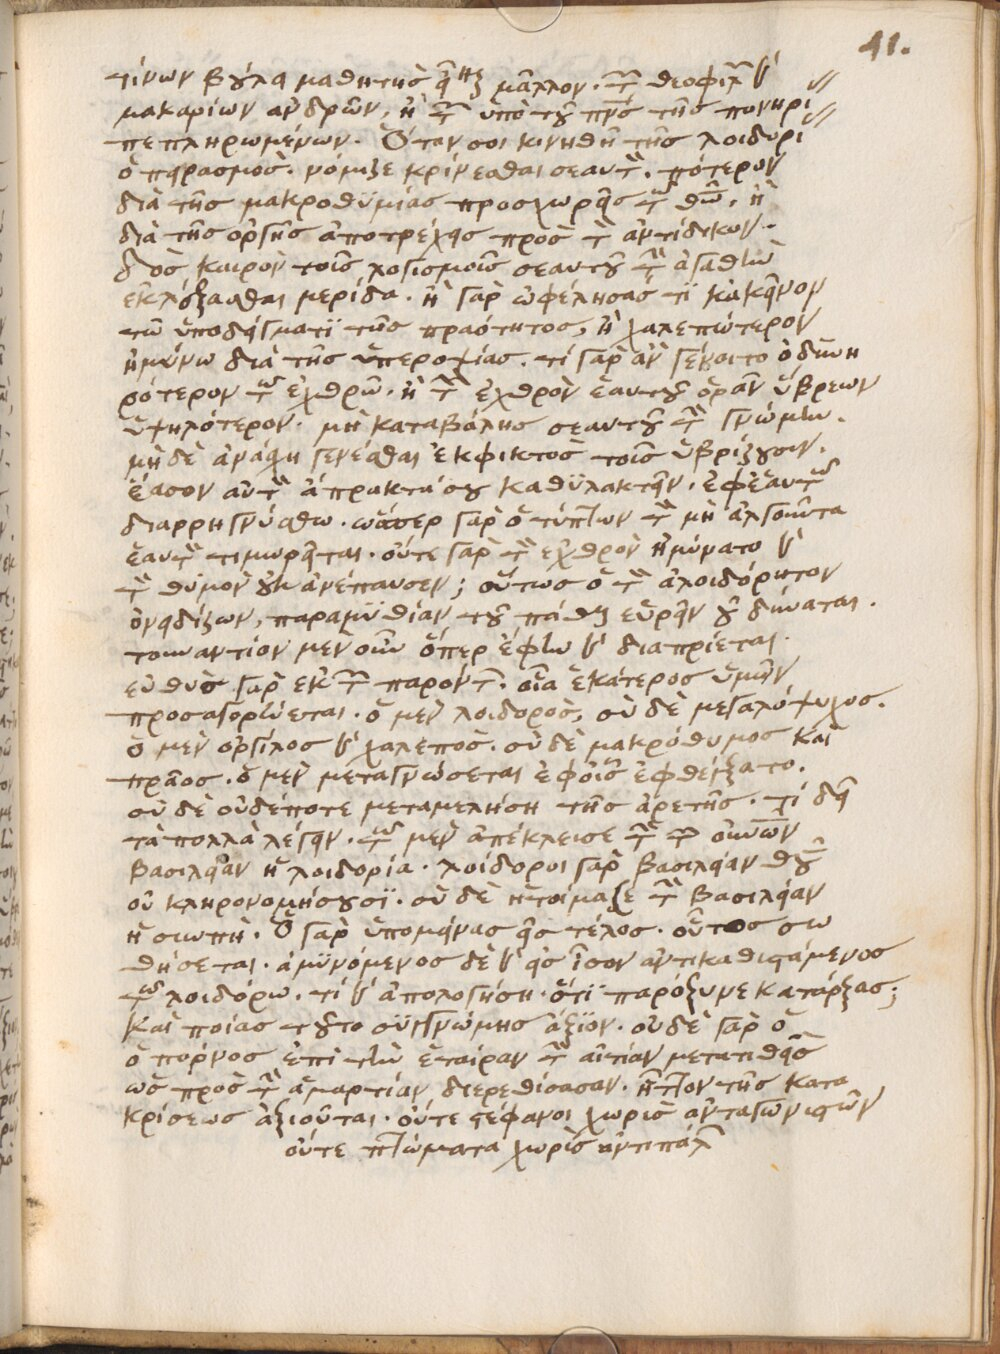 41.
τίνων βούλει μαθητὴς εἶναι μᾶλλον. τῶν θεοφιλῶν καὶ
μακαρίων ἀνδρῶν, ἢ τῶν ὑπὸ τοῦ πνς τῆς πονηρίας
πεπληρωμένων. Ὅταν σοι κινηθῆ τῆς λοιδορίας
ὁ πειρασμὸς. νόμιζε κρίνεσθαι σεαυτὸν. πότερον
διὰ τῆς μακροθυμίας προσχωρεῖς τῶ θῶ, ἢ
διὰ τῆς ὀργῆς ἀποτρέχεις πρὸς τὸν ἀντίδικον.
δὸς καιρὸν τοῖς λογισμοῖς σεαυτοῦ τὴν ἀγαθὴν
ἐκλέξασθαι μερίδα. ἢ γὰρ ὠφέλησας τϊ κἀκεῖνον
τῶ ὑποδείγματϊ τῆς πραότητος, ἢ χαλεπώτερον
ἠμύνω διὰ τῆς ὑπεροψίας. τί γὰρ ἂν γένοιτο ὀδυνη
ρότερον τῶ ἐχθρῶ. ἢ τὸν ἐχθρὸν ἑαυτοῦ ὁρᾶν ὕβρεων
ὑψηλότερον. μὴ καταβάλης σεαυτοῦ τὴν γνώμην.
μὴ δὲ ἀνάσχη γενέσθαι ἐκφικτὸς τοῖς ὑβρίζουσιν.
ἔασον αὐτὸν ἀπρακτά σου καθϋλακτεῖν. ἐφ ἑαυτῶ
διαρρηγνύσθω. ὥσπερ γὰρ ὁ τύπτων τὸν μὴ ἀλγοῦντα
ἑαυτὸν τιμωρεῖται. οὔτε γὰρ τὸν ἐχθρὸν ἠμύνατο καὶ
τὸν θυμὸν οὐκ ἀνέπαυσεν; οὕτως ὁ τὸν ἀλοιδόρητον
ὀνειδίζων, παραμϋθίαν τοῦ πάθους εὑρεῖν οὐ δύναται.
τουναντίον μὲν οὖν ὅπερ ἔφην καὶ διαπρίεται.
εὐθυς γὰρ ἐκ τῶν παρόντων. οἷα ἑκάτερος ὑμῶν
προσαγορεύεται. ὁ μὲν λοίδορος, σὺ δὲ μεγαλόψυχος.
ὁ μὲν ὀργίλος καὶ χαλεπὸς. σὺ δὲ μακρόθυμος καὶ
πρᾶος. ὁ μὲν μεταγνώσεται ἐφοῖς ἐφθέγξατο.
σὺ δὲ οὐδέποτε μεταμελήση τῆς ἀρετῆς. τί δεῖ
τὰ πολλὰ λέγειν. τῶ μὲν ἀπέκλεισε τὴν τῶν οὐνῶν
βασιλείαν ἡ λοιδορία. λοίδοροι γὰρ βασιλείαν θῦ
οὐ κληρονομήσουσϊ. σὺ δὲ ἡτοίμασε τὴν βασιλείαν
ἡ σιωπὴ. Ὁ γὰρ ὑπομείνας εἰς τέλος. οὗτος σω
θήσεται. ἀμϋνόμενος δὲ καὶ εἰς ἴσον ἀντικαθιστάμενος
τῶ λοιδόρω. τί καὶ ἀπολογήση. ὅτϊ παρόξυνε κατάρξας;
καὶ ποίας τοῦτο συγγνώμης ἄξϊον. οὐδὲ γὰρ ὁ
ὁ πόρνος ἐπὶ τὴν ἑταίραν τὴν αἰτίαν μετατιθεὶς
ὡς πρὸς τὴν ἁμαρτίαν διερεθίσασαν. ἧττον τῆς κατα
κρίσεως ἀξιοῦται. οὔτε στέφανοι χωρὶς ἀνταγωνιστῶν
οὔτε πτώματα χωρὶς ἀντιπάλων